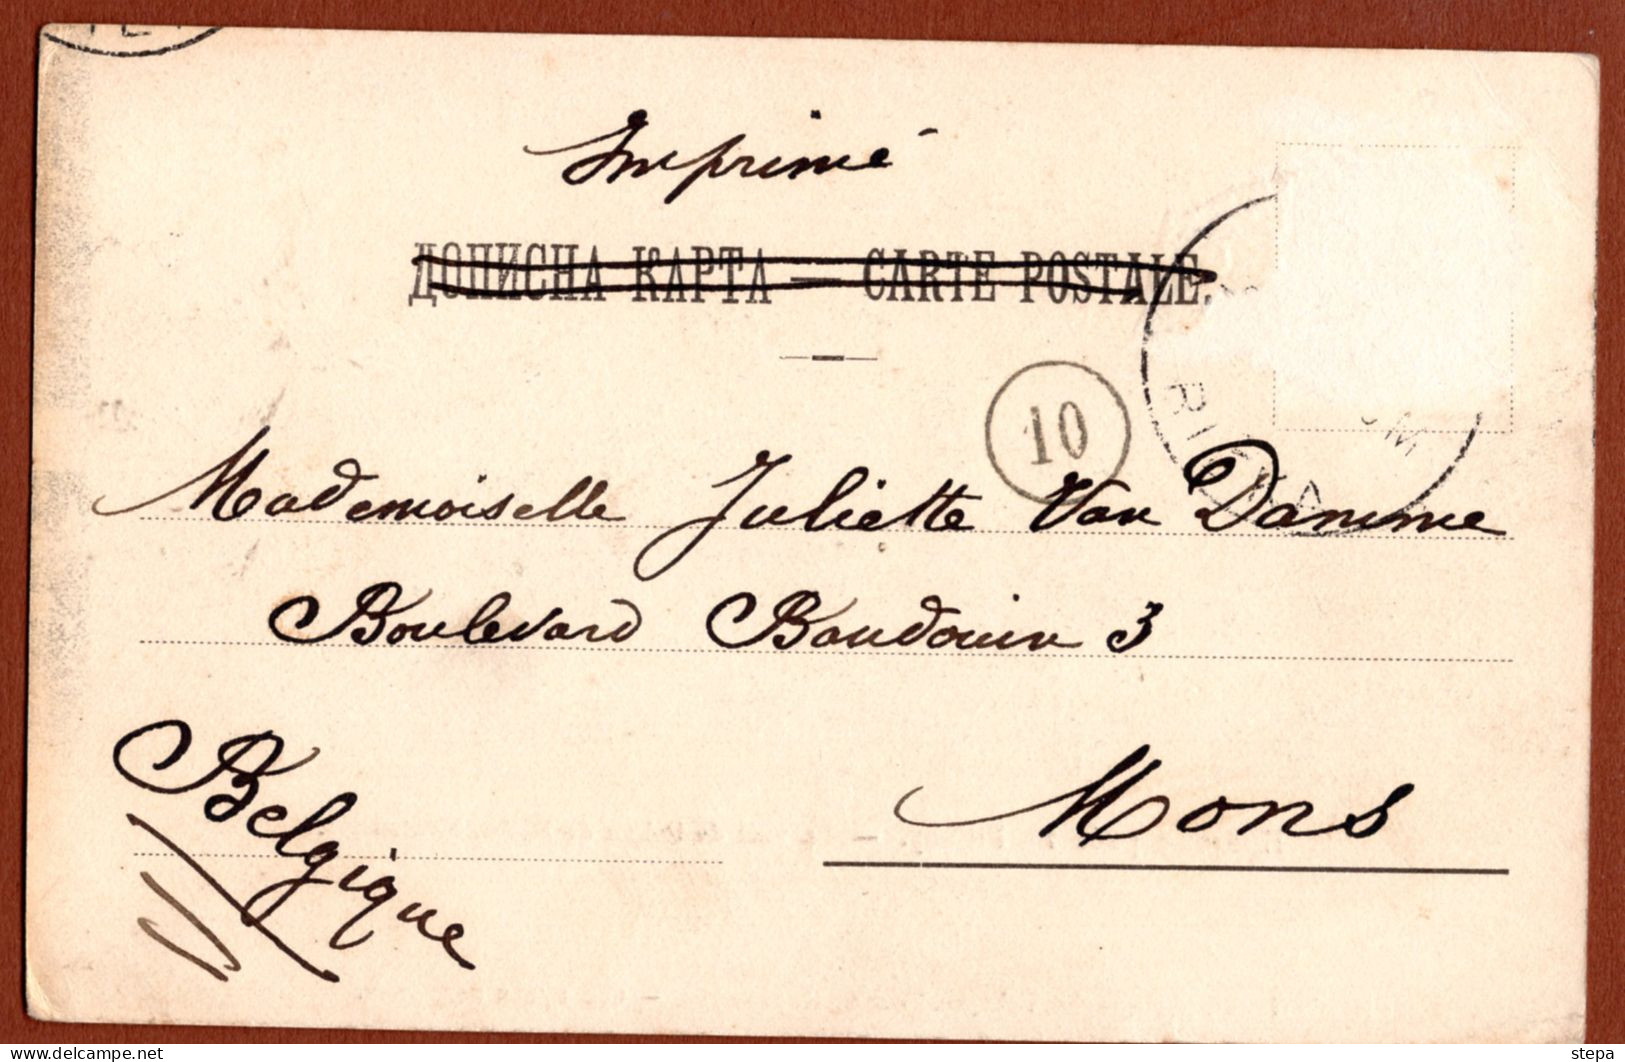 Imprimé
ДОПИСНА КАРТА — CARTE POSTALE.
10
Mademoiselle Juliette Van Damme
Boulevard Baudouin 3
Mons
Belgique
www.delcampe.net
stepa